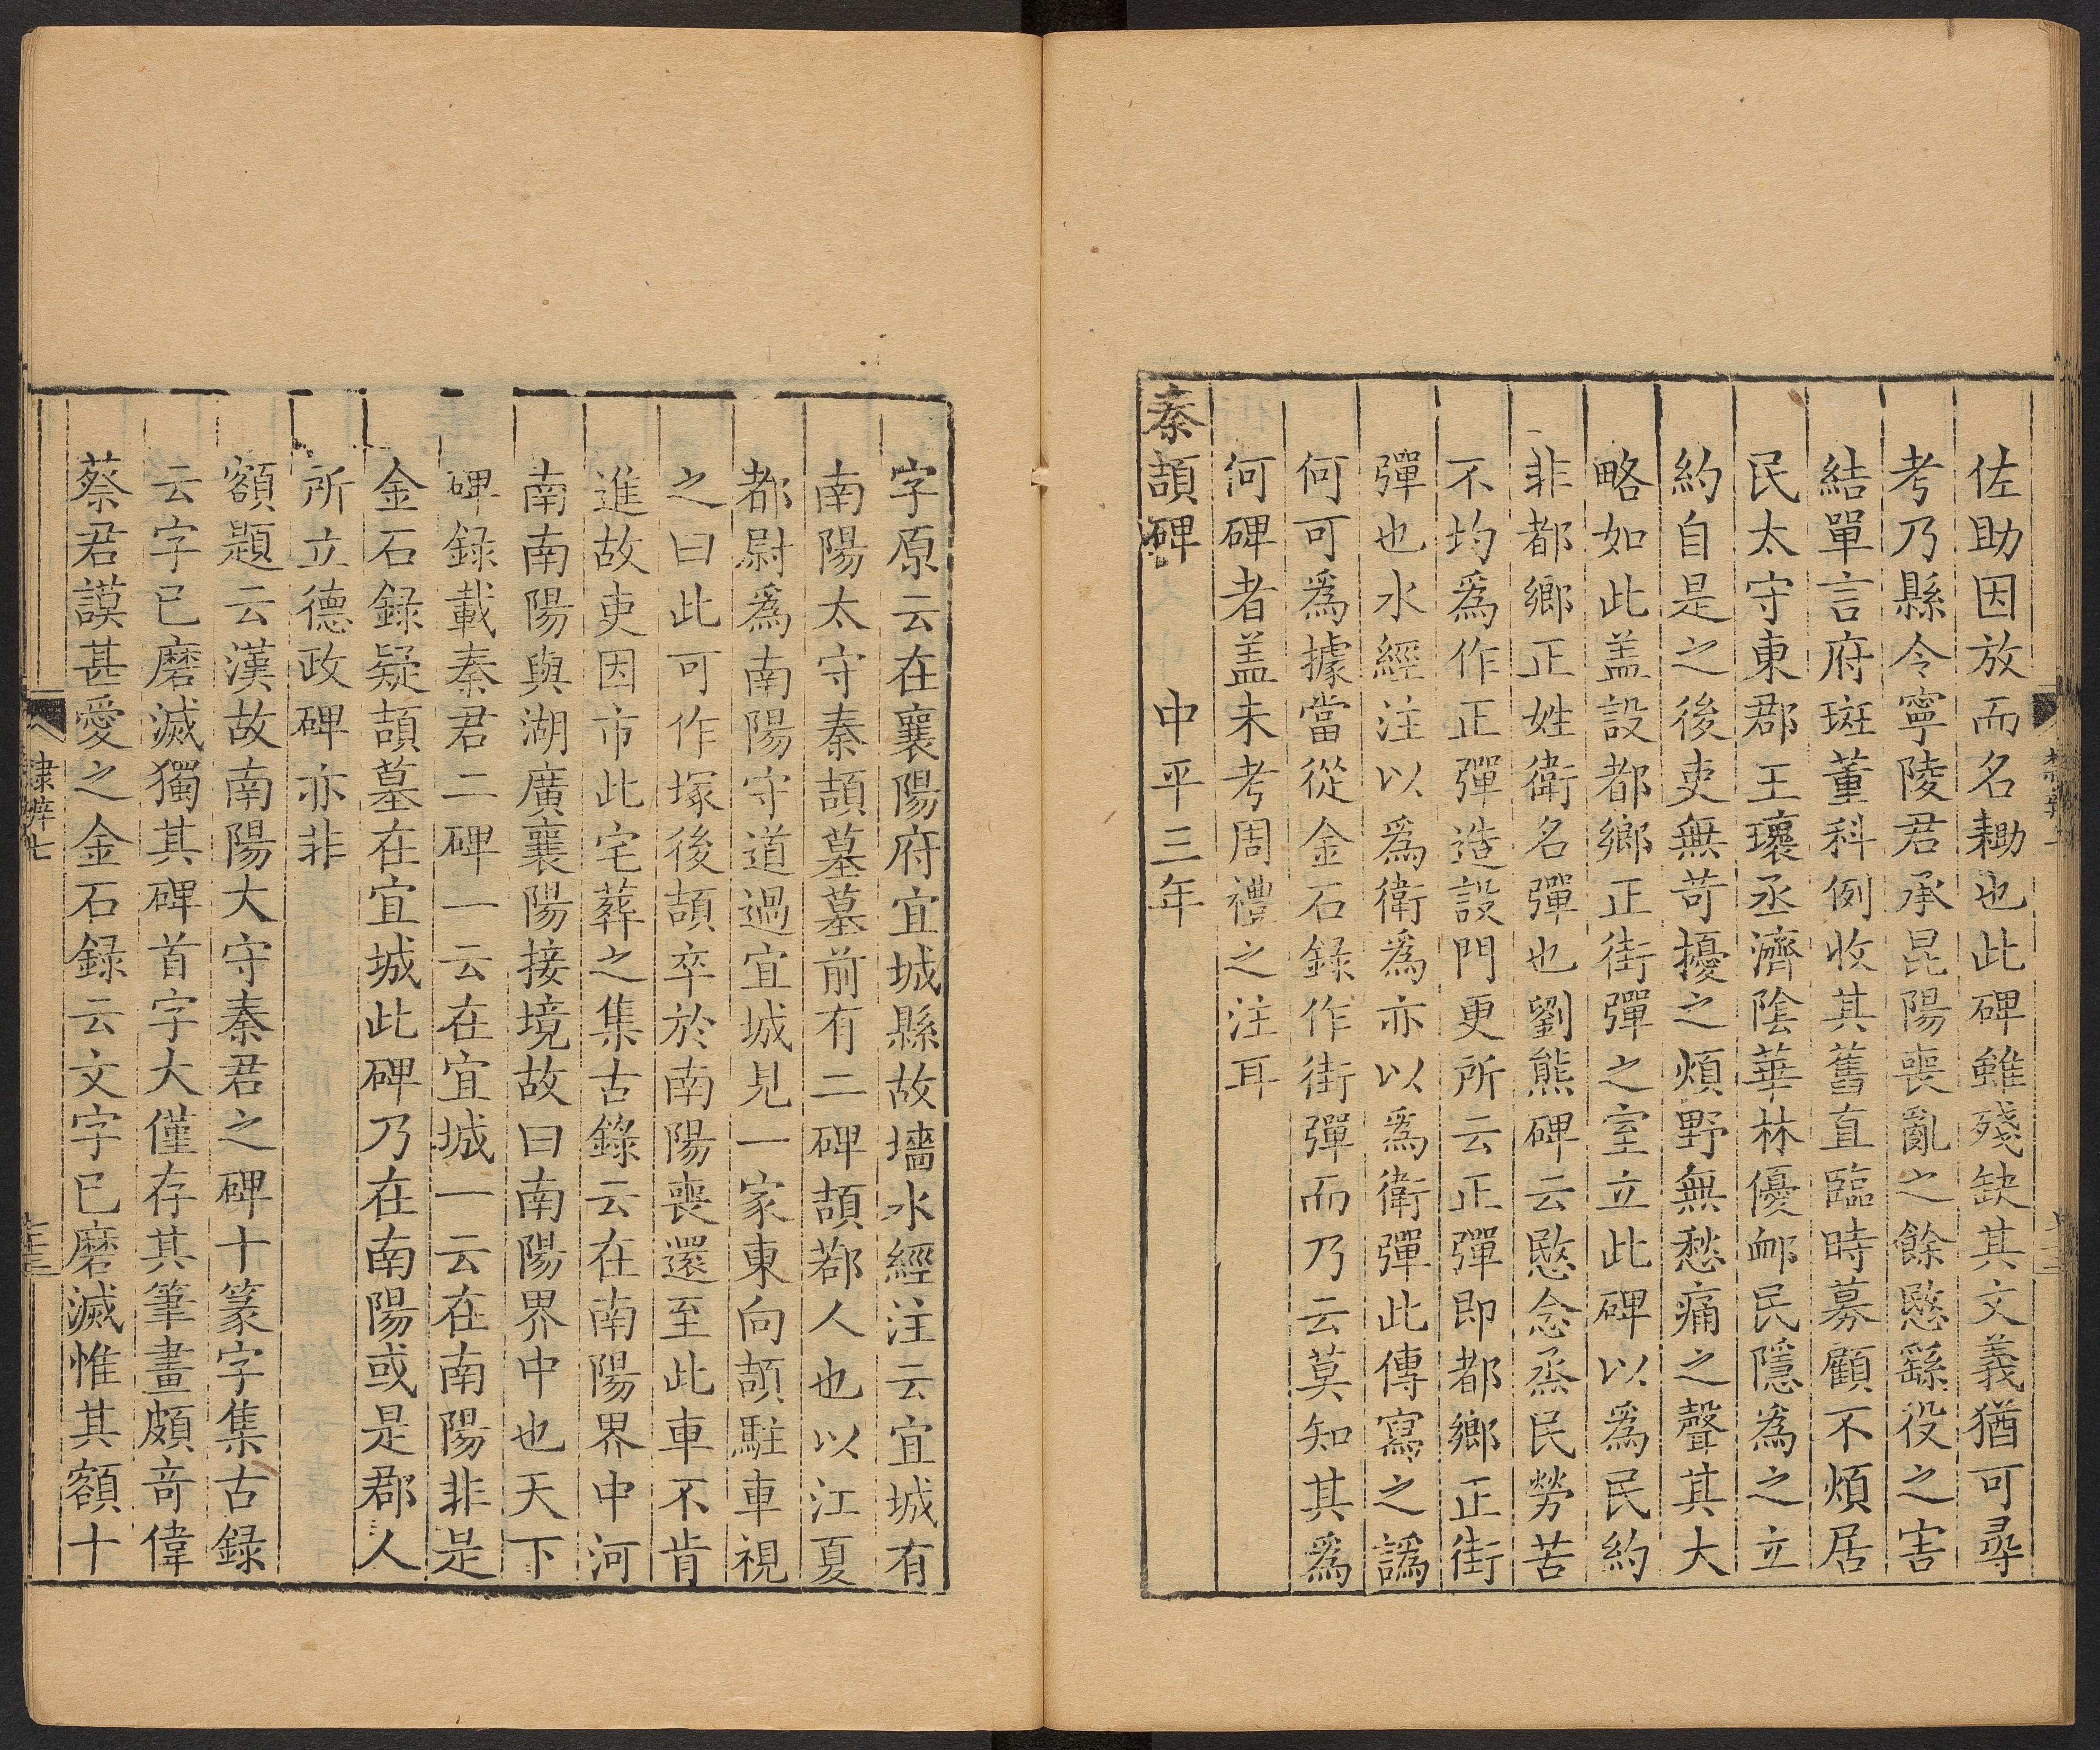 佐助因放而名耡也此碑雖殘缺其文義猶可尋
考乃縣令寧陵君承昆陽喪亂之餘愍繇役之害
結單言府斑董科例收其舊直臨時募顧不煩居
民太守東郡王瓌丞濟陰華林優䘏民隱爲之立
約自是之後吏無苛擾之煩野無愁痛之聲其大
略如此盖設都鄉正街彈之室立此碑以爲民約
非都鄉正姓衛名彈也劉熊碑云愍念烝民勞苦
不均爲作正彈造設門更所云正彈即都鄉正街
彈也水經注以爲衛爲亦以爲衛彈此傳寫之譌
何可爲據當從金石錄作街彈而乃云莫知其爲
何碑者盖未考周禮之注耳
秦頡碑 中平三年
字原云在襄陽府宜城縣故墻水經注云宜城有
南陽太守秦頡墓墓前有二碑頡鄀人也以江夏
都尉爲南陽守道過宜城見一家東向頡駐車視
之曰此可作塚後頡卒於南陽喪還至此車不肯
進故吏因市此宅葬之集古錄云在南陽界中河
南南陽與湖廣襄陽接境故曰南陽界中也天下
碑録載秦君二碑一云在宜城一云在南陽非是
金石録疑頡墓在宜城此碑乃在南陽或是郡人
所立德政碑亦非
額題云漢故南陽大守秦君之碑十篆字集古録
云字已磨滅獨其碑首字大僅存其筆畫頗竒偉
蔡君謨甚愛之金石録云文字已磨滅惟其額十
隸辨七